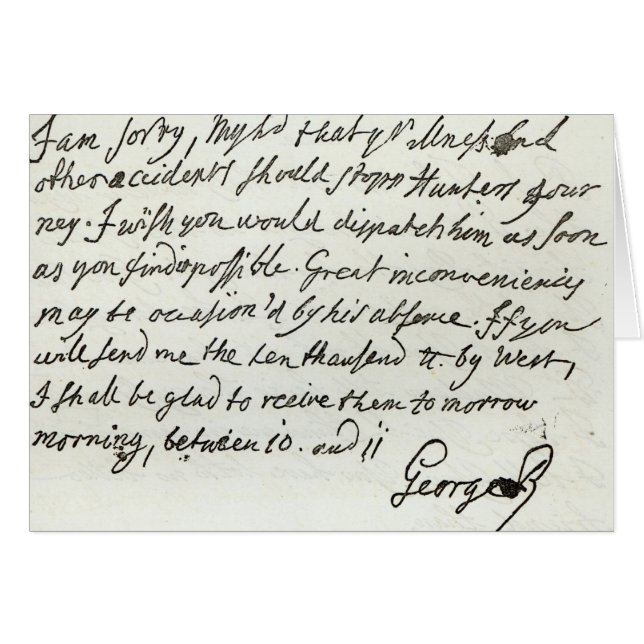 I am sorry, Mylrd that yr illness and
other accidents should stopp Hunters jour
ney. I wish you would dispatch him as soon
as you find it possible. Great inconveniency
may be occasion'd by his absence. If you
will send me the ten thousend tt. by West,
I shall be glad to receive them to morrow
morning, between 10. and 11
George R